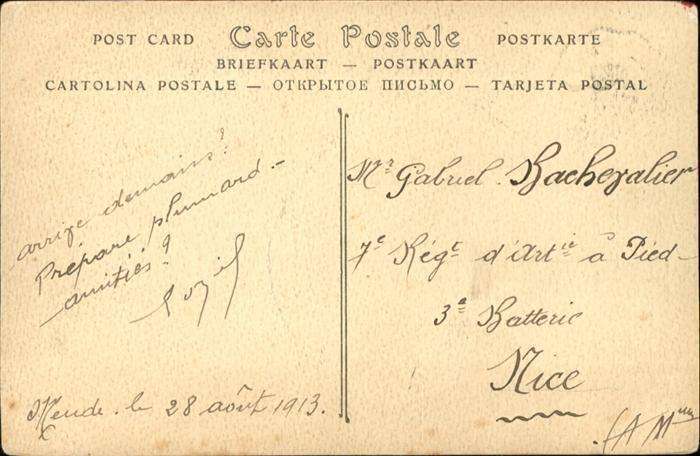 POST CARD Carte Postale POSTKARTE
BRIEFKAART — POSTKAART
CARTOLINA POSTALE — ОТКРЫТОЕ ПИСЬМО — TARJETA POSTAL
arrive demain!
Prépare plumard —
amitiés
Mende. le 28 août 1913.
Mr Gabriel Bachevalier
7e Régt d'Artie à Pied —
3e Batterie
Nice
(A Mmes